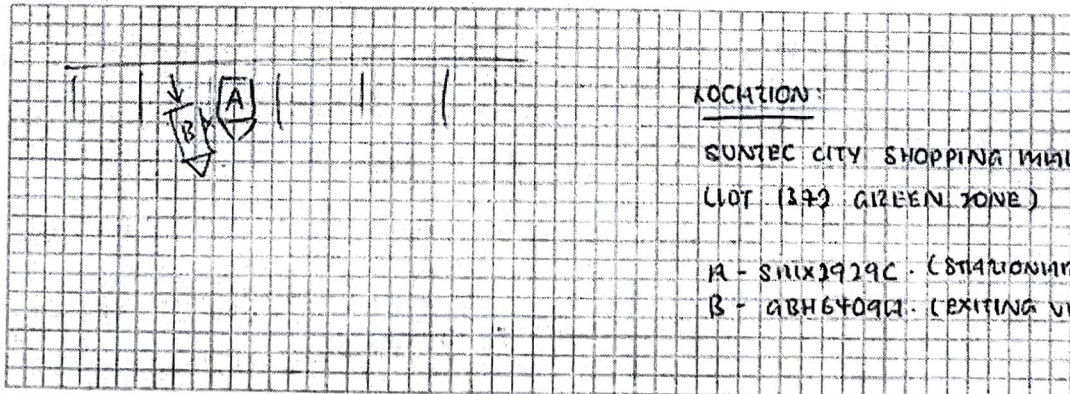 A
B
LOCATION:
SUNTEC CITY SHOPPING MALL
(LOT 1372 GREEN ZONE)
A - SMX2929C. (STATIONAR
B - (EXITING